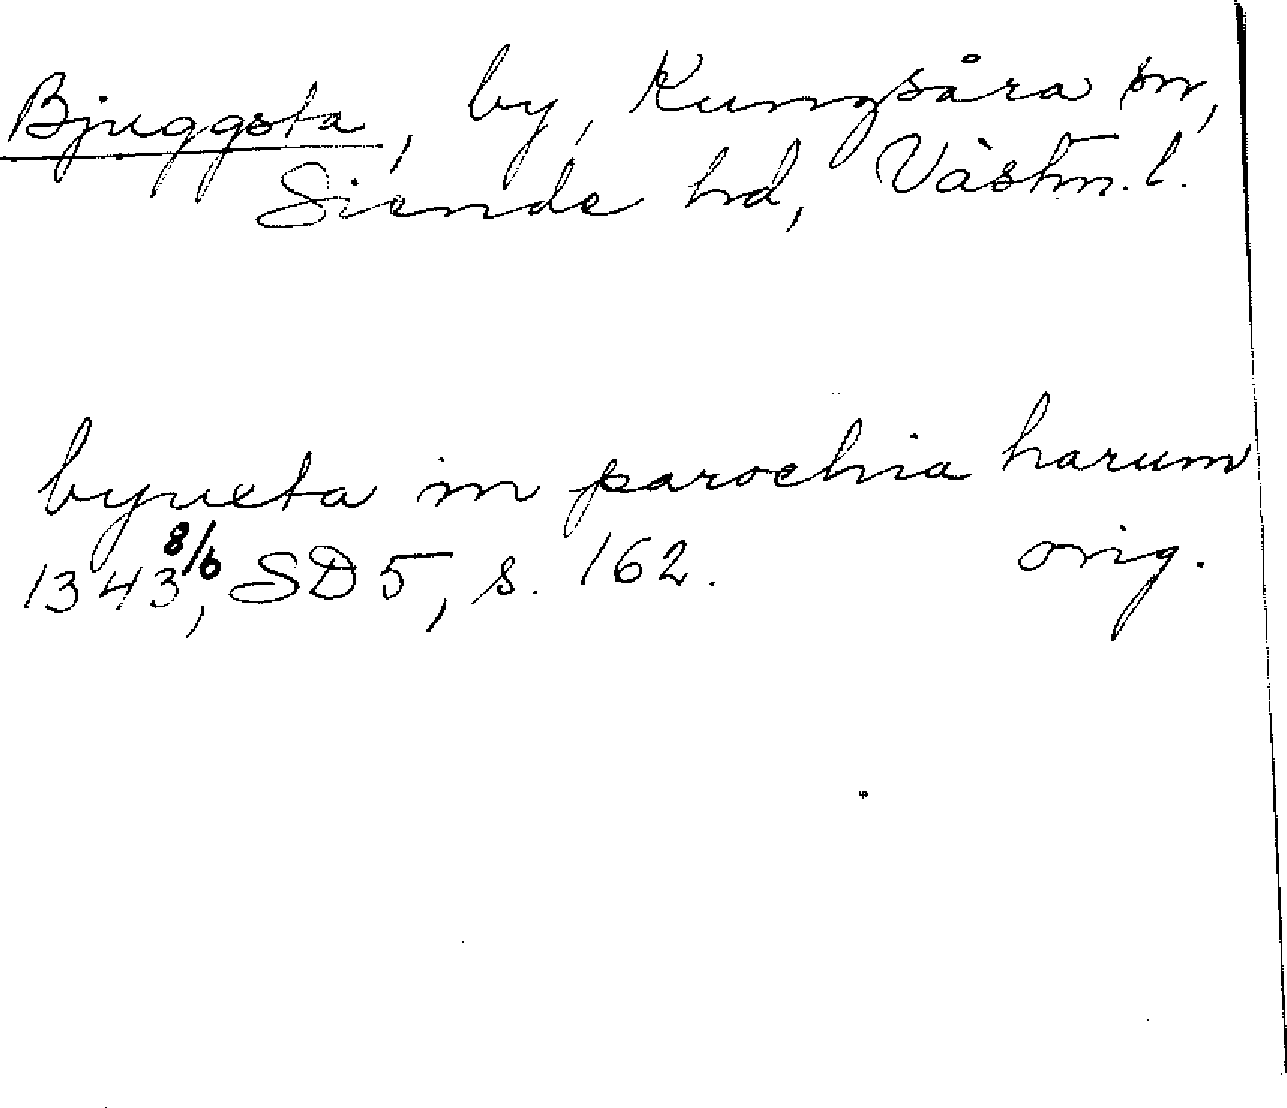 Bjuggsta, by, Kungsåra sn,
Siende hd, Västm. l.
byuxta in parochia harum
1343 8/6, SD 5, s. 162. orig.